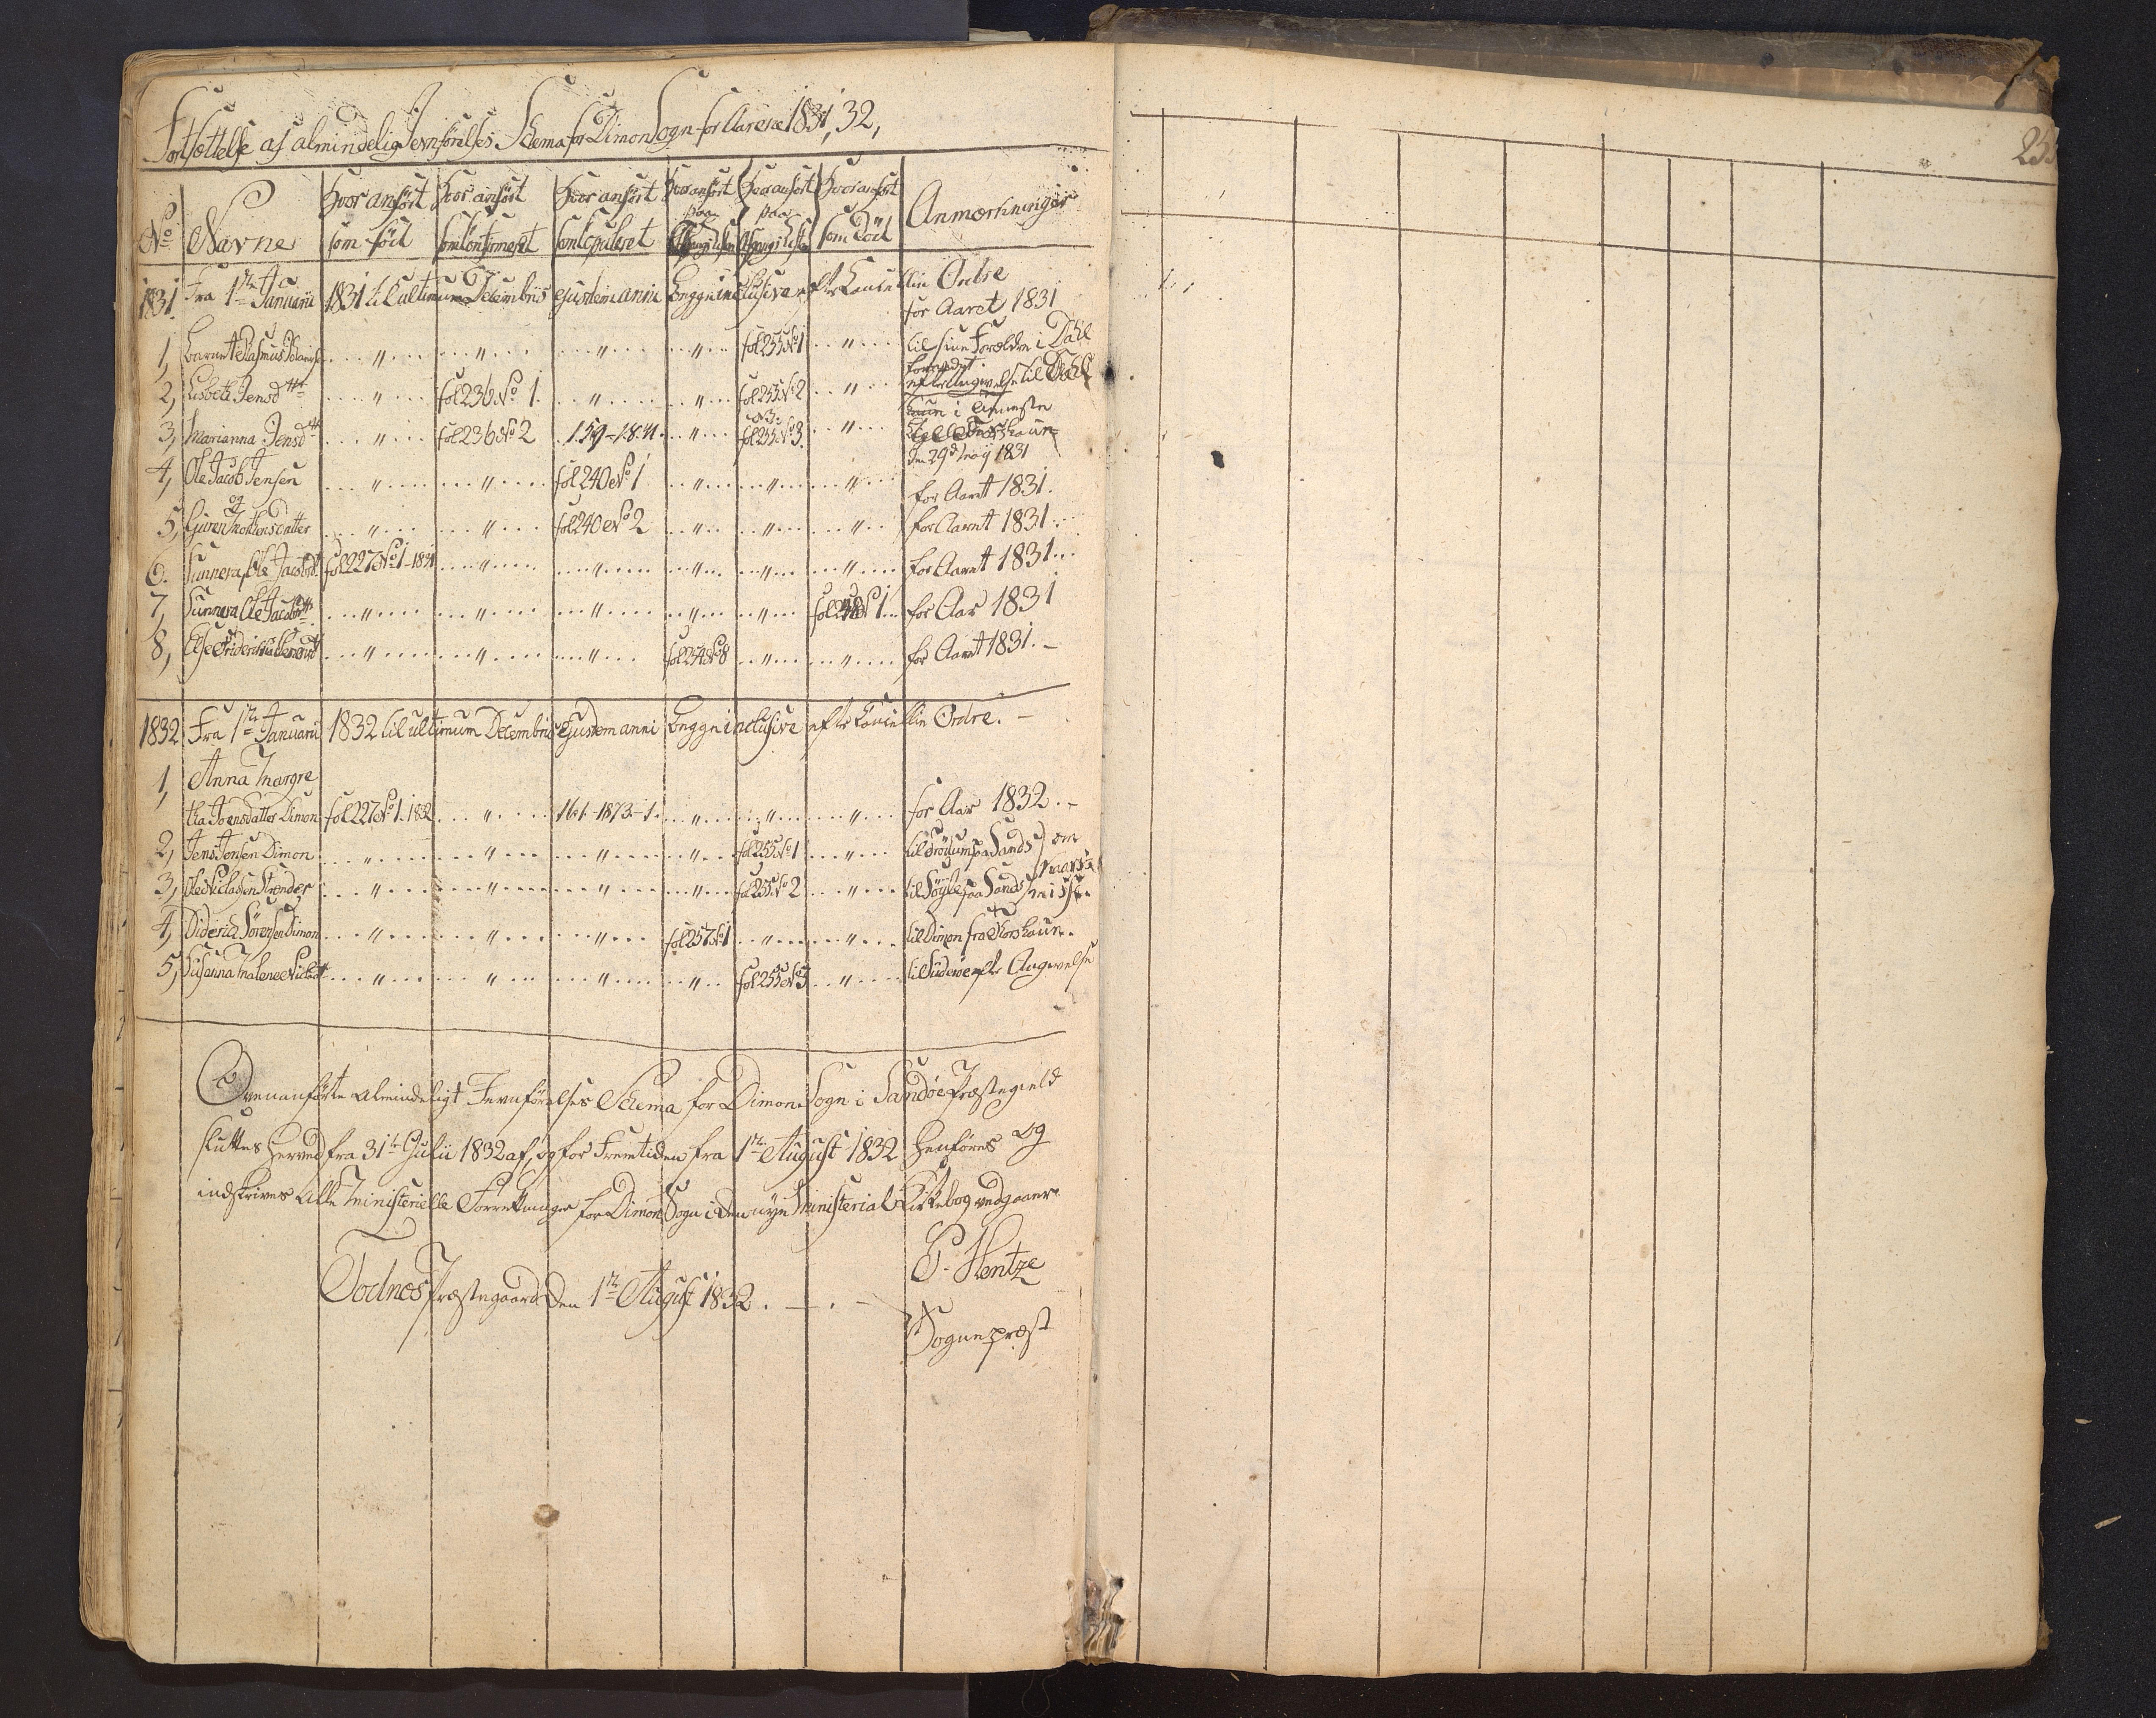 Fortsættelse af almindelig Jevnførelses Schema for Dimon Sogn for Aarene 1831, 32,
No Navne Hvor anført som født Hvor anført som Confirmeret Hvor anført som Copuleret Hvor anført paa Hvor anført paa Afgangs Listen Hvor anført som Död Anmærkninger
1831 Fra 1te Januarii 1831 til ultimum Decembris ejusdem anni begge inclusive efter Cancellie Ordre
for Aaret 1831
1, Barnet Rasmus " " " " fol 255 No 1 " til sine Forældre i Dahl
2, Lisbeth Jensdtt " fol 236 No 1. " " fol 255 No 2 " efter Angivelse til Dahl
3, Marianna Jensdtt " fol 236 No 2 159-1841. " fol 255 No 3. " i Tieneste
den 29de May 1831
4, Ole Jacob Jensen " " fol 240 No 1 " " " for Aaret 1831.
og
5, " " fol 240 No 2 " " " for Aaret 1831.
6. Sunneva Ole Jacobsdt fol 227 No 1-1831 " " " " " for Aaret 1831.
7, Sunneva Ole Jacobsdtt " " " " " No 1 for Aar 1831
8, Else Friderikke " " " fol 254 No 8 " " for Aaret 1831.-
1832 Fra 1te Januarii 1832 til ultimum Decembris Ejusdem anni begge inclusive efter Cancellie Ordre. -
1, Anna Margre
tha Joensdatter Dimon fol 227 No 1. 1832 " 161-1873-1. " " " for Aar 1832.-
2, Jens Jensen Dimon " " " " fol 255 No 1 " til paa Sandö
3, Ole Niclassen Strender " " " " fol 255 No 2 " til paa Sandö
4, Diderich Sörensen Dimon " " " fol 257 No 1 " " til Dimon fra Thorshavn.
5, Susanna Malene " " " " fol 255 No 3 " til Suderöe efter Angivelse
Ovenanførte almindeligt Jevnførelses Schema for Dimons Sogn i Sandöe Præstegield
sluttes herved fra 31te Julii 1832 af, og for Fremtiden fra 1te August 1832 henføres og
indskrives alle Ministerielle Forretninger for Dimons Sogn i den nye Ministerial Kirkebog vedgaaer
Todnes Præstegaard den 1te August 1832. - . -
P. Hentze
Sognepræst